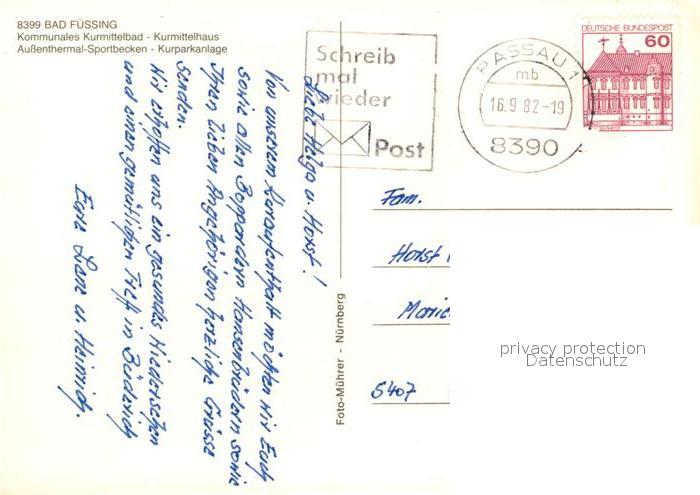 8399 BAD FÜSSING
Kommunales Kurmittelbad - Kurmittelhaus
Außenthermal-Sportbecken - Kurparkanlage
Schreib
mal
wieder
Post
PASSAU 1
mb
16.9.82-19
8390
DEUTSCHE BUNDESPOST
60
Liebe Helga u. Horst!
Von unserem Kuraufenthalt möchten wir Euch
sowie allen Bopparдern Hansenbrüdern sowie
Ihren lieben Angehörigen herzliche Grüsse
senden.
Wir erhoffen uns ein gesundes Wiedersehen
und einen gemütlichen Treff in
Eure u. Heinrich.
Foto-Mührer - Nürnberg
Fam.
Horst
5407
privacy protection
Datenschutz